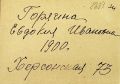 Горячина
Евдокия Ивановна
1900.
Херсонская 73